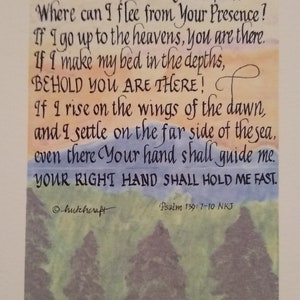 Where can I flee from Your Presence?
If I go up to the heavens, You are there.
If I make my bed in the depths,
BEHOLD YOU ARE THERE!
If I rise on the wings of the dawn,
and I settle on the far side of the sea,
even there Your hand shall guide me.
YOUR RIGHT HAND SHALL HOLD ME FAST.
© hutchcraft
Psalm 139:7-10 NKJ